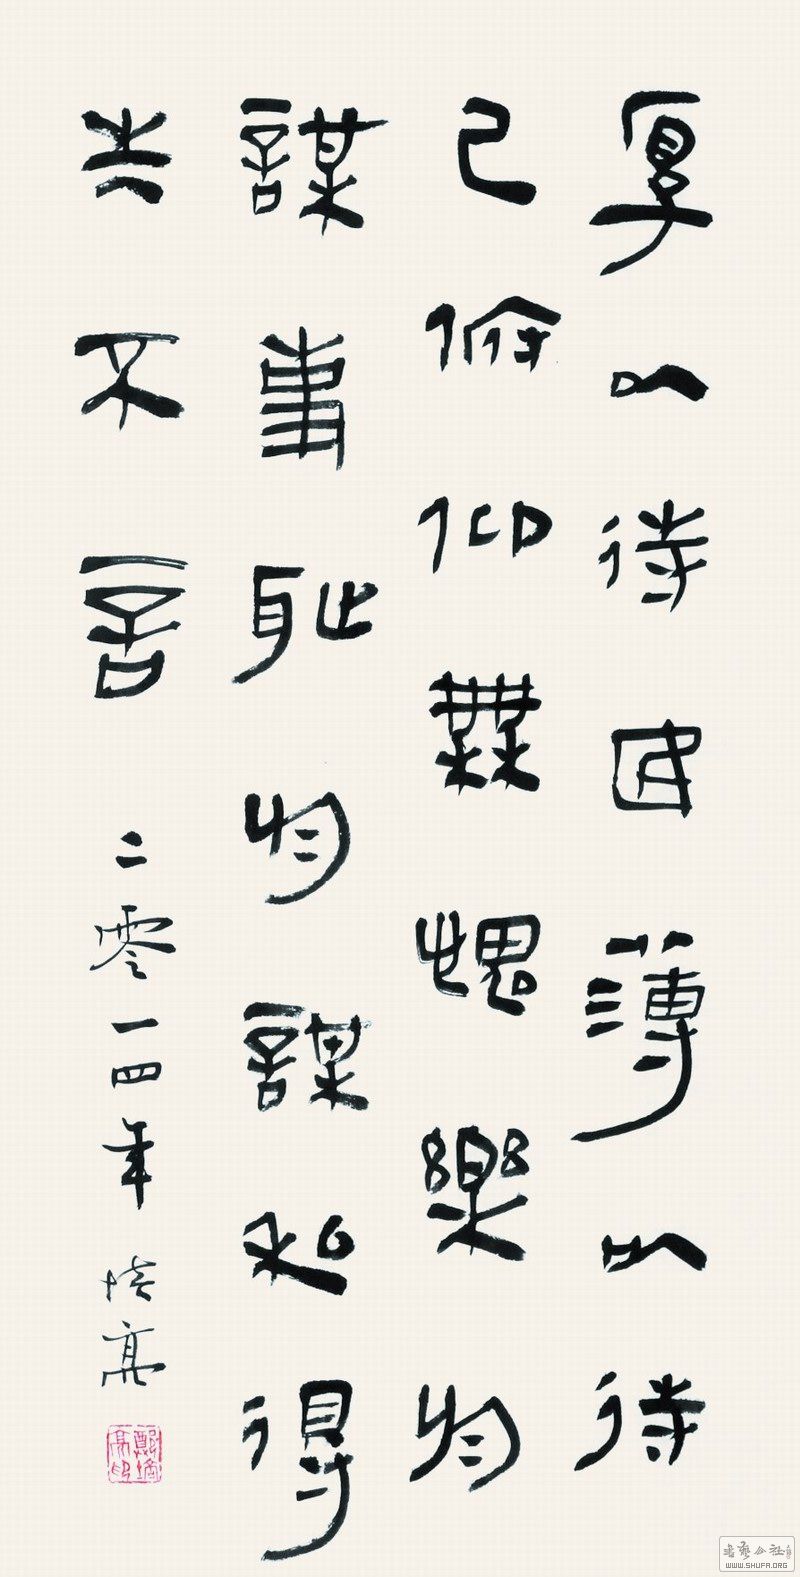 厚以待民薄以待
己俯仰無愧樂於
謀事恥於謀私得
失不言
二零一四年 培高
鄭培高印
書藝公社
WWW.SHUFA.ORG